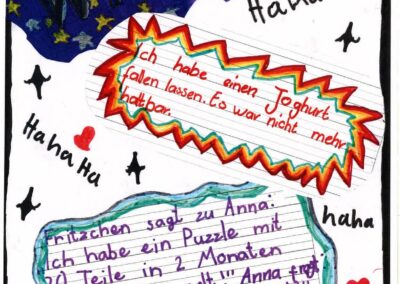 HaHaHa
Ich habe einen Joghurt
fallen lassen. Es war nicht mehr
haltbar.
HaHaHa
haha
Fritzchen sagt zu Anna:
Ich habe ein Puzzle mit
20 Teile in 2 Monaten
Anna